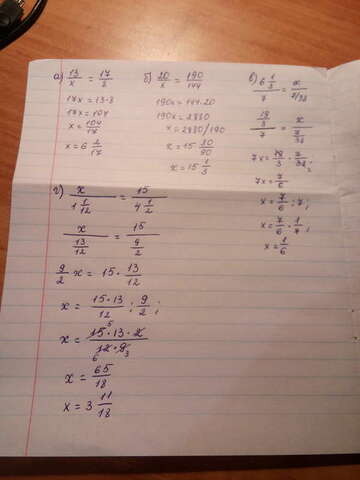 а) 13/x = 17/8
17x = 13·8
17x = 104
x = 104/17
x = 6 2/17
б) 20/x = 190/144
190x = 144·20
190x = 2880
x = 2880/190
x = 15 30/90
x = 15 1/3
в) 6 1/3 / 7 = x / 7/38
19/3 / 7 = x / 7/38
7x = 19/3 · 7/38;
7x = 7/6
x = 7/6 : 7;
x = 7/6 · 1/7;
x = 1/6
г) x / 1 1/12 = 15 / 4 1/2
x / 13/12 = 15 / 9/2
9/2 x = 15 · 13/12
x = 15·13/12 : 9/2;
x = 15·13·2 / 12·9
5
6 3
x = 65/18
x = 3 11/18